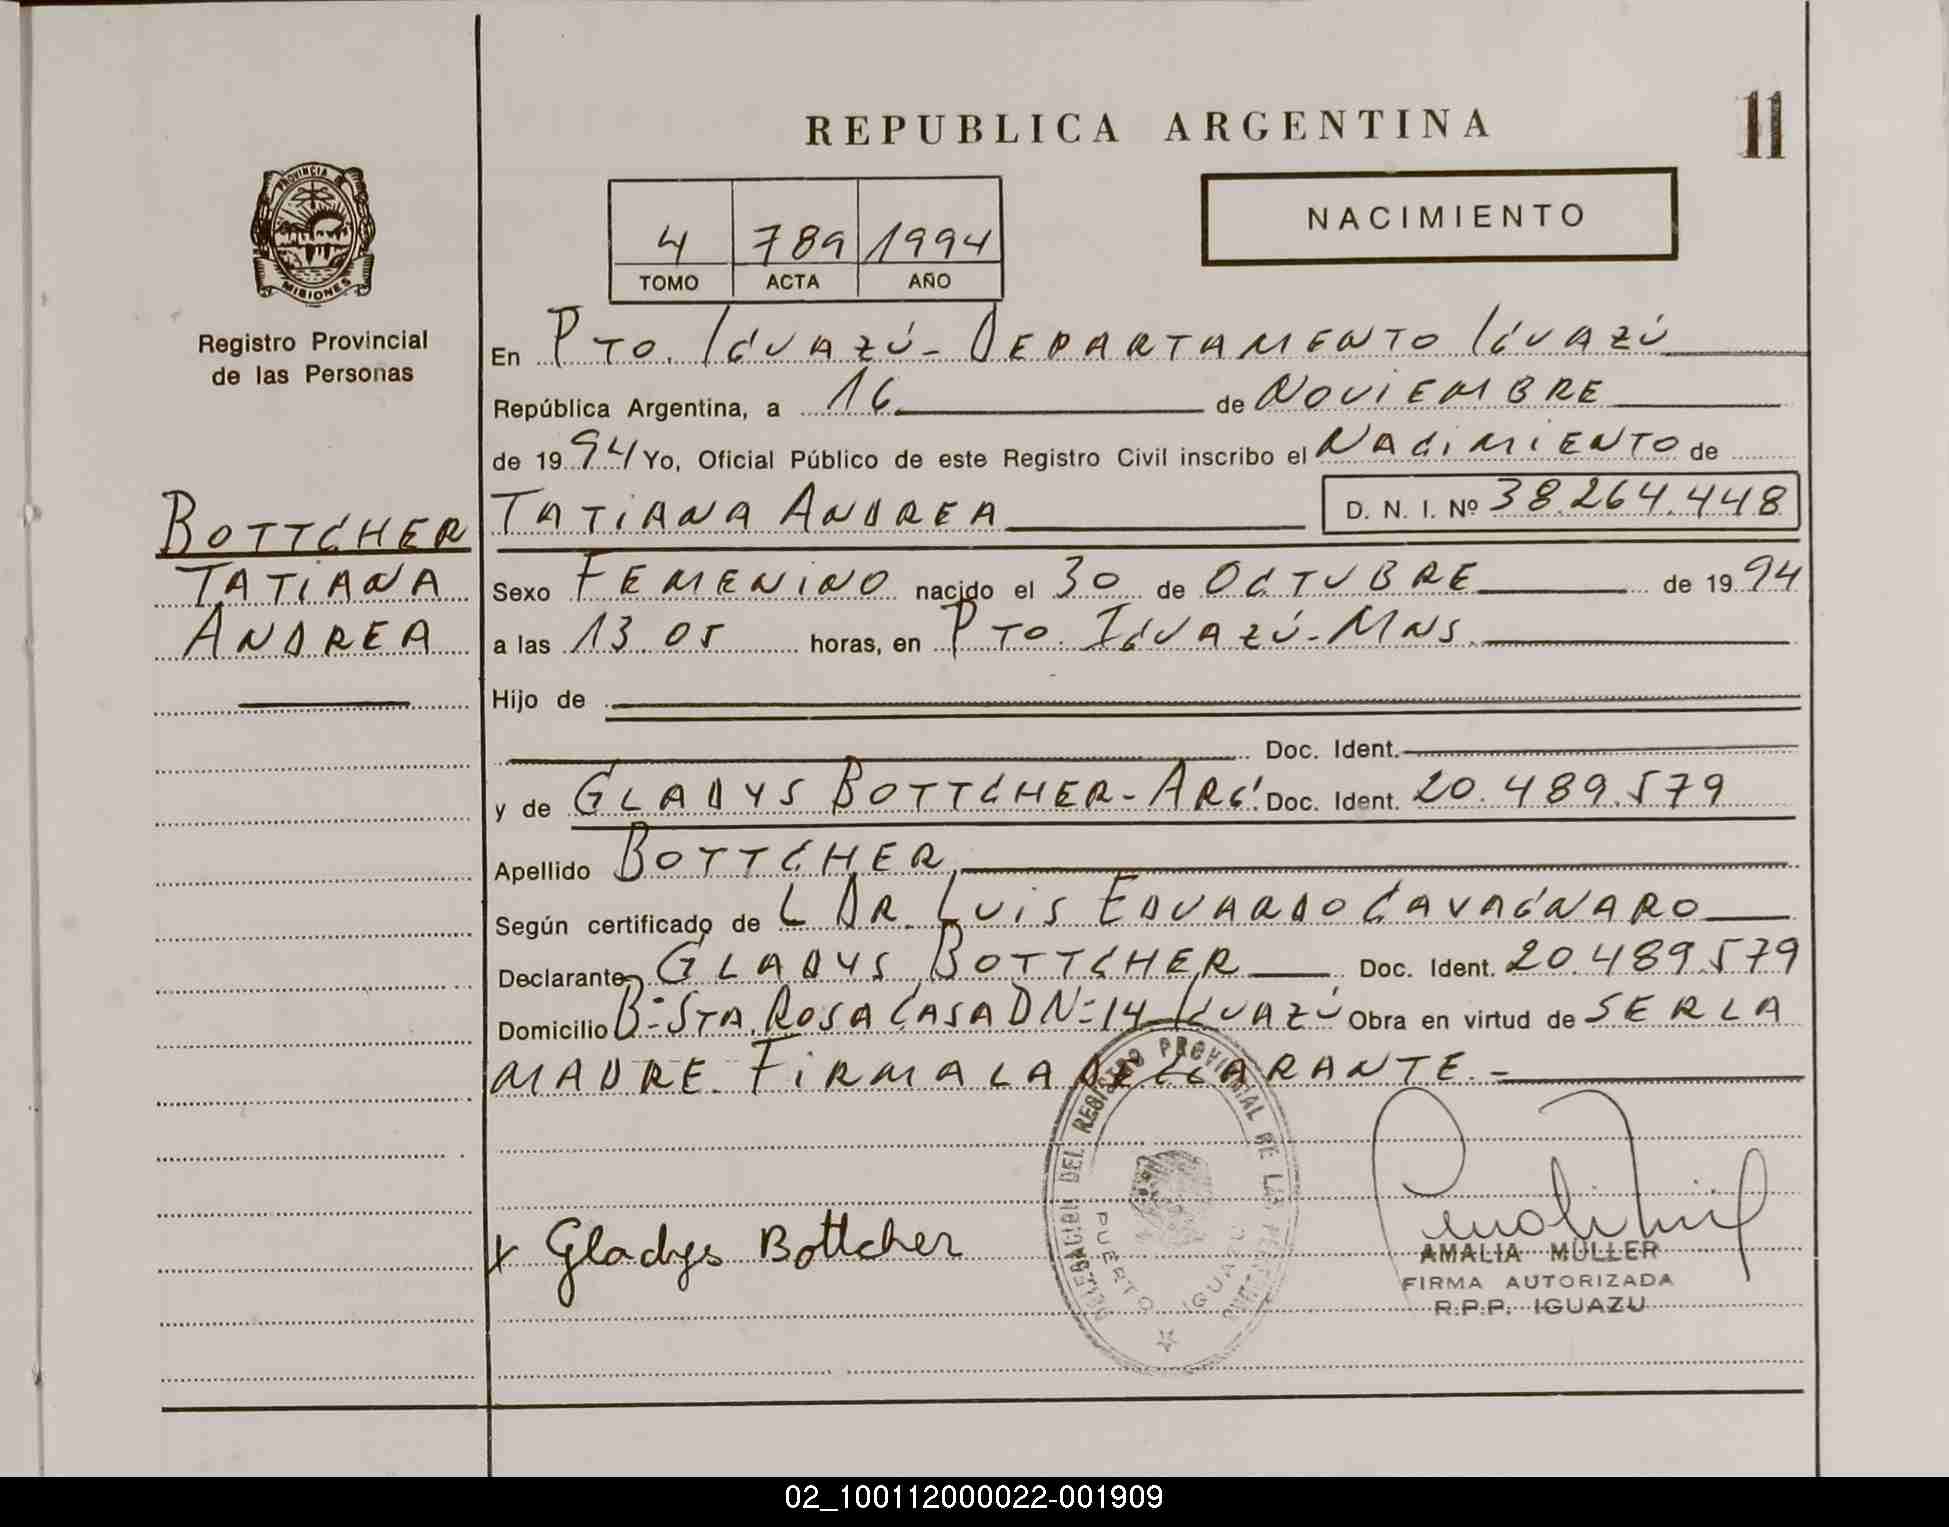 REPUBLICA ARGENTINA
11
PROVINCIA
MISIONES
Registro Provincial
de las Personas
4 789 1994
TOMO ACTA AÑO
NACIMIENTO
En PTO. IGUAZÚ - DEPARTAMENTO IGUAZÚ
República Argentina, a 16 de NOVIEMBRE
de 1994 Yo, Oficial Público de este Registro Civil inscribo el NACIMIENTO de
BOTTCHER
TATIANA
ANDREA
TATIANA ANDREA D. N. I. Nº 38.264.448
Sexo FEMENINO nacido el 30 de OCTUBRE de 1994
a las 13.05 horas, en PTO. IGUAZÚ - MNS.
Hijo de
Doc. Ident.
y de GLADYS BOTTCHER - ARG. Doc. Ident. 20.489.579
Apellido BOTTCHER
Según certificado de L DR. LUIS EDUARDO CAVAGNARO
Declarante GLADYS BOTTCHER Doc. Ident. 20.489.579
Domicilio Bº STA. ROSA CASA D Nº 14 IGUAZÚ Obra en virtud de SER LA
MADRE. FIRMA LA DECLARANTE. -
DELEGACION DEL REGISTRO PROVINCIAL DE LAS PERSONAS
PUERTO IGUAZU
x Gladys Bottcher
AMALIA MULLER
FIRMA AUTORIZADA
R.P.P. IGUAZU
02_100112000022-001909